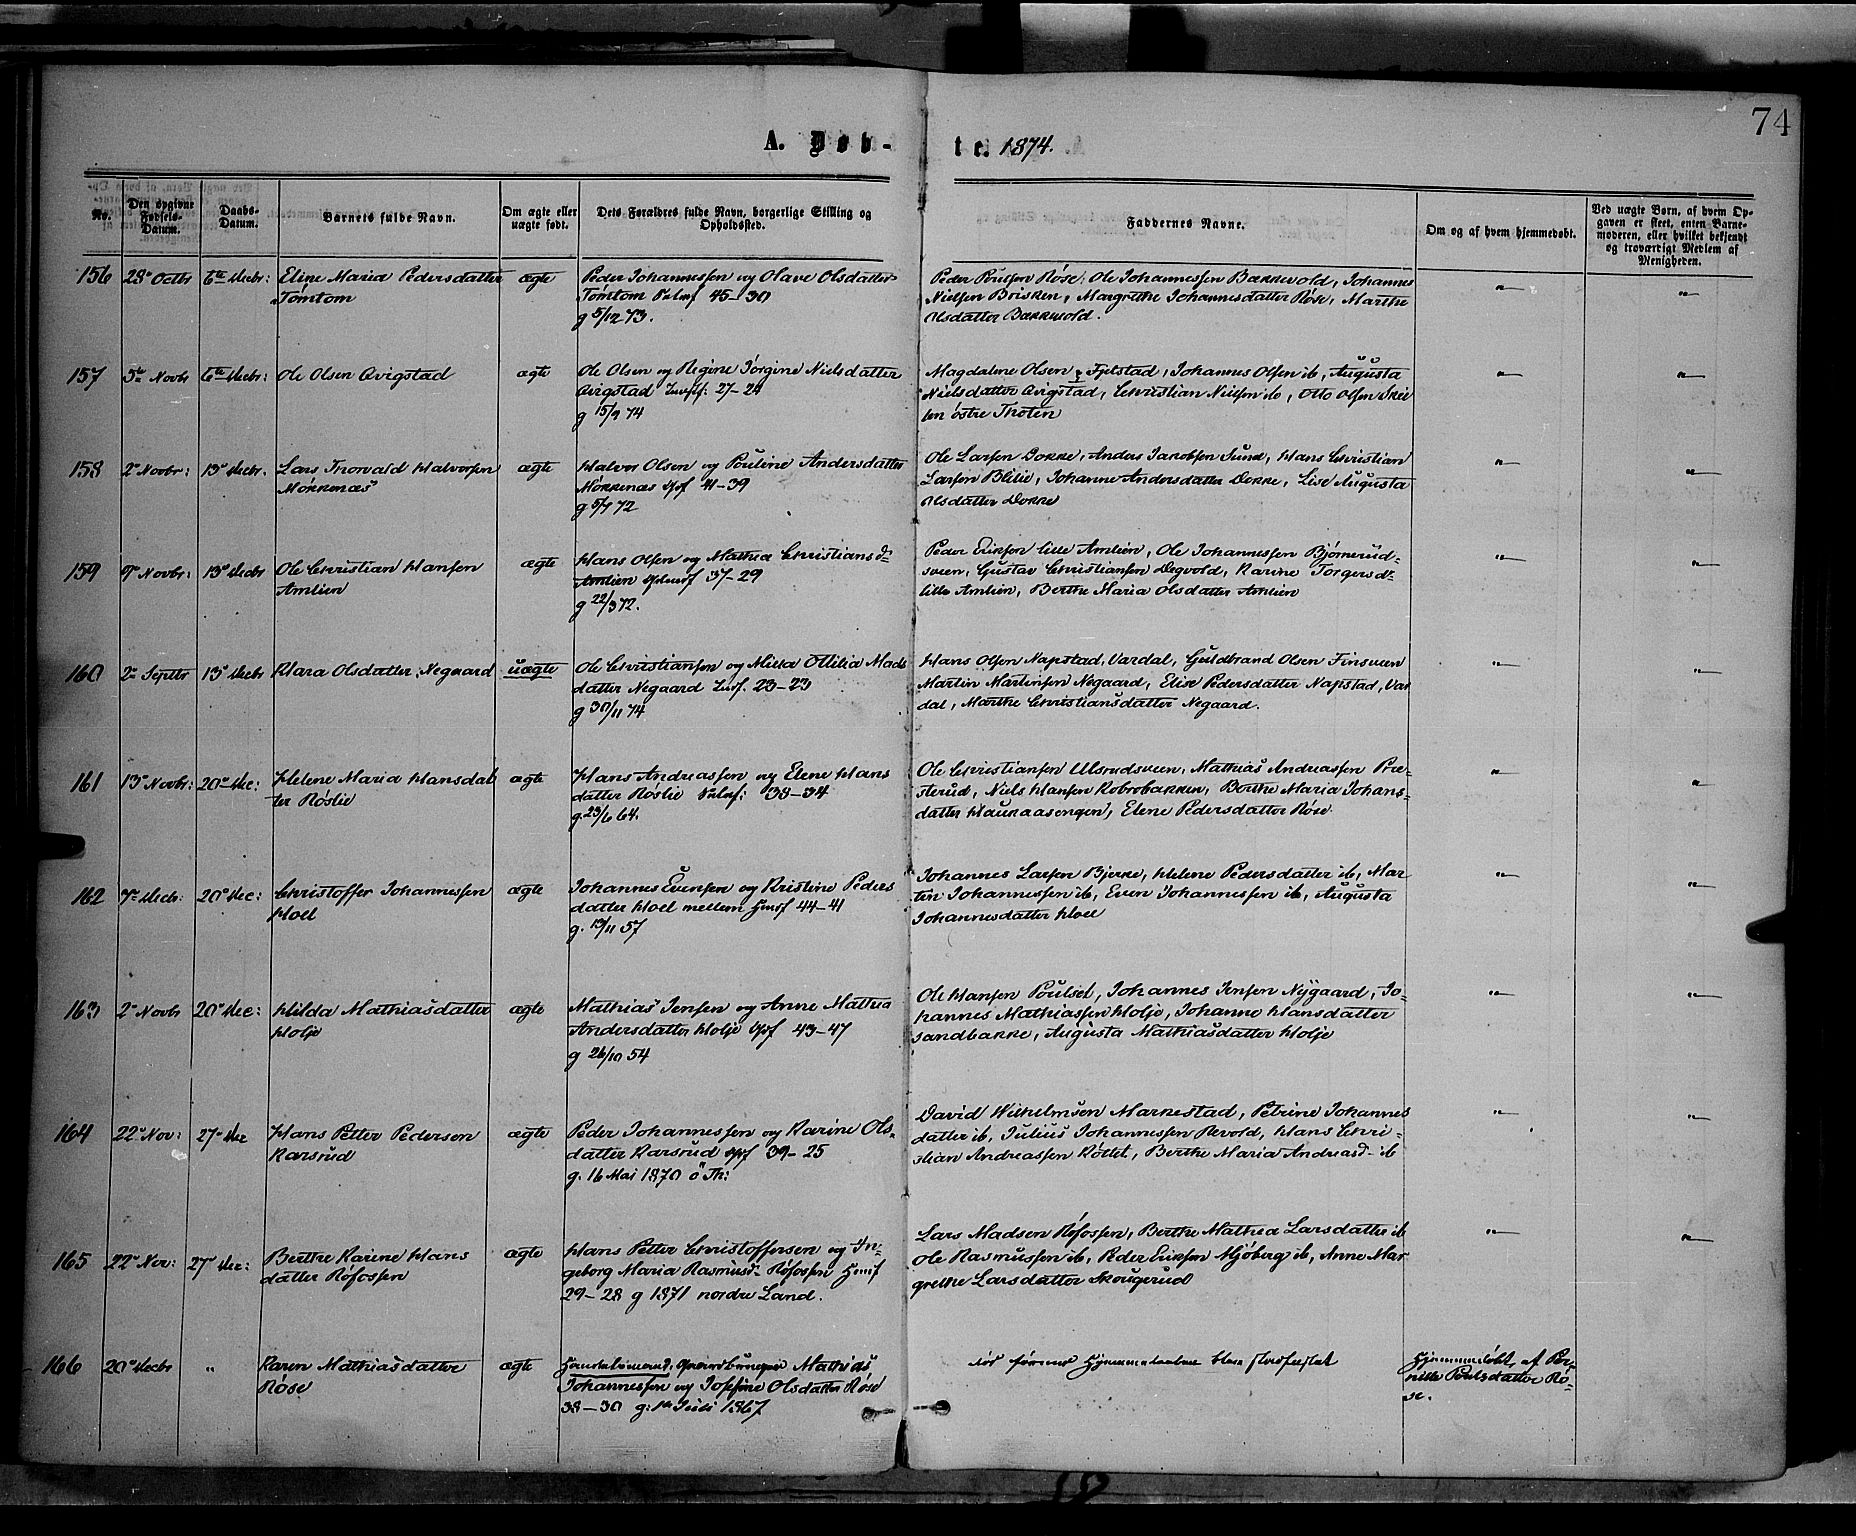 74
A. Døb-
te. 1874.
No.
Den opgivne Fødsels-Datum.
Daabs-Datum.
Barnets fulde Navn.
Om ægte eller uægte født.
Dets Forældres fulde Navn, borgerlige Stilling og Opholdssted.
Faddernes Navne.
Om og af hvem hjemmedøbt.
Ved uægte Børn, af hvem Opgaven er skeet, enten Barnemoderen, eller hvilket bekjendt og troværdigt Medlem af Menigheden.
156 28de Octbr 6te Decbr: Eline Maria Pedersdatter ægte Peder Johannessen og Olave Olsdatter
Tømtom Tømtom 45-30
g 5/12 73.
Peder Poulsen Røse, Ole Johannessen Bakkevold, Johannes
Nielsen Brisken, Margrethe Johannesdatter Røse, Marthe
Olsdatter Bakkevold.
157 5te Novbr 6te Decbr: Ole Olsen Qvigstad ægte Ole Olsen og Regine Jørgine Nielsdatter
Qvigstad 27-24
g 15/9 74
Magdalene Olsen Fjelstad, Johannes Olsen ib, Augusta
Nielsdatter Qvigstad, Christian Nielsen ib, Otto Olsen
østre Thoten
158 2de Novbr: 13de Decbr. Lars Thorvald Halvorsen ægte Halvor Olsen og Pouline Andersdatter
Mørkenæs Mørkenæs 41-39
g 5/7 72
Ole Larsen Dokke, Anders Jacobsen Sund, Hans Christian
Larsen Blilie, Johanne Andersdatter Dokke, Lise Augusta
Olsdatter Dokke
159 9de Novbr: 13de Decbr Ole Christian Hansen ægte Hans Olsen og Mathea Christiansd:
Amlien Amlien 37-29
g 22/3 72.
Peder Eriksen lille Amlien, Ole Johannessen Bjørnerud-
sveen, Gustav Christiansen Degvold, Karine Torgersdr
lille Amlien, Berthe Maria Olsdatter Amlien
160 2de Septbr 13de Decbr Klara Olsdatter Negaard uægte Ole Christiansen og Milla Ottilia Mads
datter Negaard 23-23
g 30/11 74
Hans Olsen Napstad, Vardal, Guldbrand Olsen Finsveen
Martin Martinsen Negaard, Elise Pedersdatter Napstad, Var
dal, Marthe Christiansdatter Negaard.
161 13de Novbr: 20de Dec: Helene Maria Hansdat ægte Hans Andreassen og Elene Hans
ter Røslie datter Røslie 38-34
g. 23/6 64.
Ole Christiansen Ulsrudsveen, Mathias Andreassen Pre-
sterud, Niels Hansen Kobrobakken, Berthe Maria Johans-
datter Haukaasengen, Elene Pedersdatter Røse
162 7de Decbr: 20de Dec: Christoffer Johannessen ægte Johannes Evensen og Kristine Peders
Hoel datter Hoel mellem 44-41
g. 13/11 57
Johannes Larsen Bjerke, Helene Pedersdatter ib, Mar
tin Johannessen ib, Even Johannessen ib, Augusta
Johannesdatter Hoel
163 2de Novbr 20de Dec: Hilda Mathiasdatter ægte Mathias Jensen og Anne Mathea
Holje Andersdatter Holje 43-47
g 26/10 54
Ole Hansen Poulset, Johannes Jensen Nygaard, Jo-
hannes Mathiassen Holje, Johanne Hansdatter
Sandbakke, Augusta Mathiasdatter Holje
164 22de Nov: 27de Dec Hans Petter Pedersen ægte Peder Johannessen og Karine Ols-
Karsrud datter Karsrud 39-25
g. 16 Mai 1870 ø Th:
David Wilhelmsen Markestad, Petrine Johannes
datter ib, Julius Johannessen Revold, Hans Chri-
stian Andreassen Køltet, Berthe Maria Andreasd- ib
165 22de Nov: 27de Dec: Berthe Karine Hans ægte Hans Petter Christoffersen og In-
datter Røfossen geborg Maria Rasmusd- Røfossen
29-28 g 1871 nordre Land.
Lars Madsen Røfossen, Berthe Mathea Larsdatter ib
Ole Rasmussen ib, Peder Eriksen Mjøberg ib, Anne Mar
grethe Larsdatter Skougerud
166 20de Decbr " Karen Mathiasdatter ægte Mathias
Røse Johannessen og Josefine Olsdatter Røse
38-30 g: 1 Juli 1867
Hjemmedaaben blev stadfæstet
Hjemmedøbt af Per-
nille Poulsdatter Rø-
se.